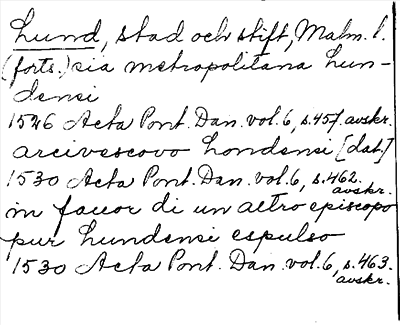 Lund, stad och stift, Malm. l.
(forts.) sia metropolitana Lun-
densi
1526 Acta Pont. Dan. vol. 6, s. 457. avskr.
arcivescovo Londensi [dat]
1530 Acta Pont. Dan. vol. 6, s. 462.
avskr.
in fauor di un altro episcopo
pur Lundensi espulso
1530 Acta Pont. Dan. vol. 6, s. 463.
avskr.